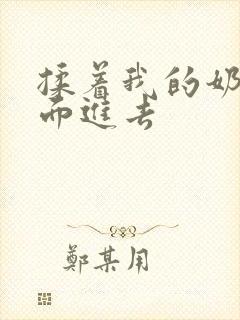 揉着我的奶
而進去
鄭某用